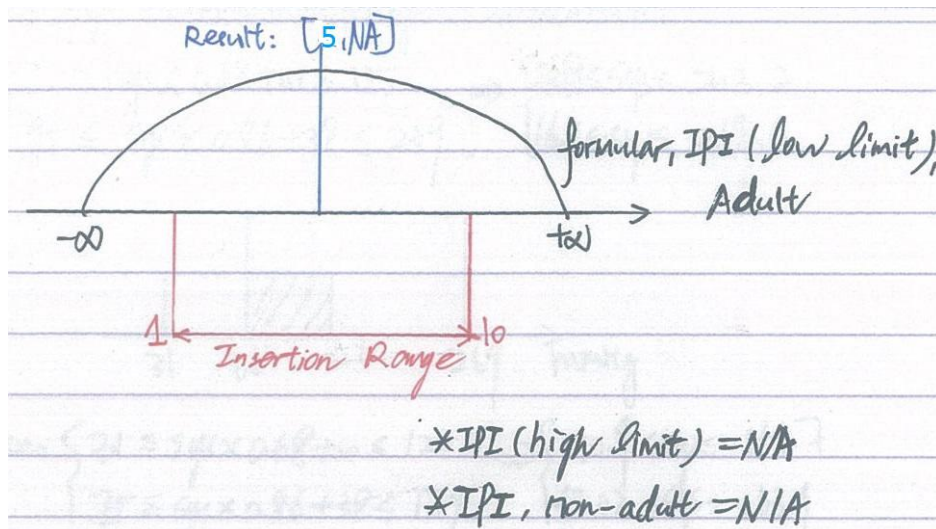 Result: [5, NA]
formular, IPI (low limit),
Adult
-∞
+∞
1
10
Insertion Range
*IPI (high limit) = N/A
*IPI, non-adult = N/A